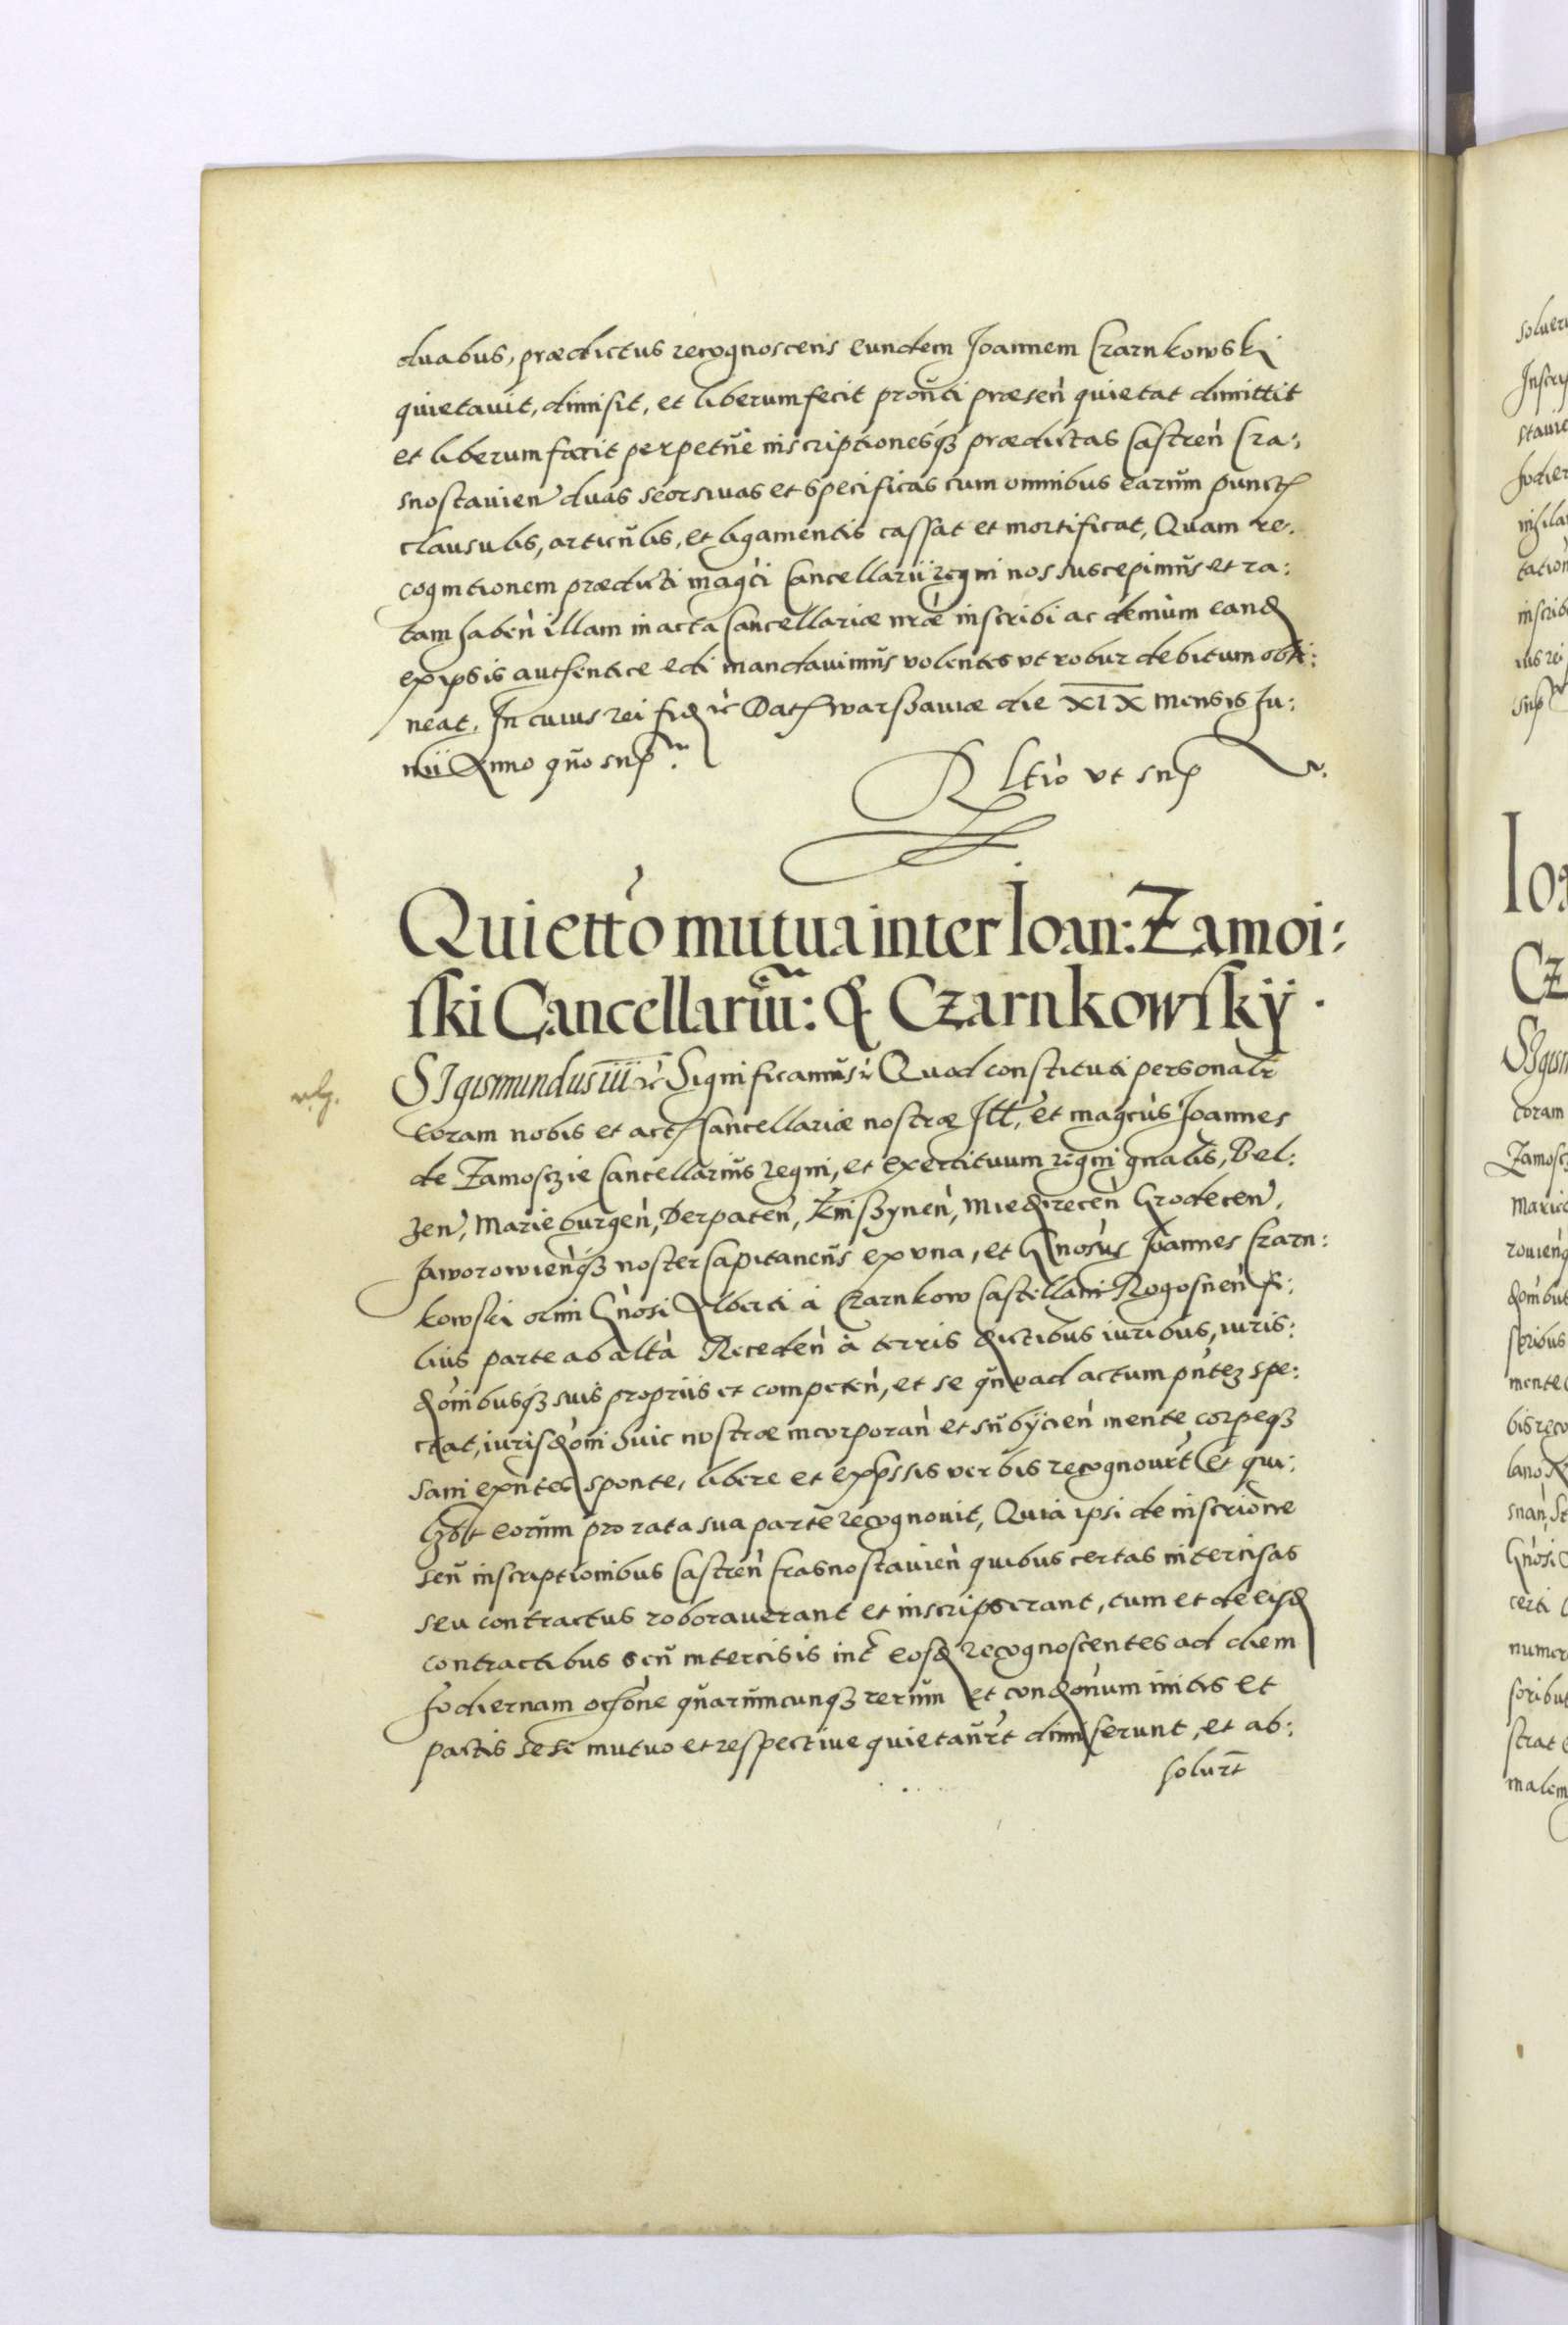 duabus, prædictus recognoscens eundem Joannem Czarnkowski
quietavit, dimisit, et liberum fecit proũti præsen̍ quietat dimittit
et liberum facit perpetuẽ inscriptionesq̃ȝ prædictas Castren̍ Cra:
snostavien̍ duas seorsivas et specificas cum omnibus earũm punct
clausulis, articũlis, et ligamentis cassat et mortificat, Quam re:
cognitionem prædicti magc̍i Cancellarii regni nos suscepimũs et ra:
tam haben̍ illam in acta Cancellariæ nræ̃ inscribi ac demùm eand
ex ipsis authentice edi mandavimũs volentes vt robur debitum obti:
neat. In cuius rei fid ꝛc̃ Dat Warßaviæ die XIX mensis Ju:
nii Anno quõ sup̃.
Rltiõ vt sup
Quiettõ mutua inter Ioan: Zamoi:
ski Cancellariũ: & Czarnkowskÿ.
SIgismundus iii ꝛc̃ Significamũs ꝛc̃ Quod constituti personalr̃
coram nobis et act Cancellariæ nostræ Ill, et magcùs Joannes
de Zamosczie Cancellariũs regni, et exercituum regni gnalis, Bel:
zen̍, Marieburgen̍, Derpaten̍, Knißynen̍, Miedzrecen̍ Grodecen̍,
Jaworowien̍q̃ȝ noster Capitaneũs ex vna, et Gnosùs Joannes Czarn:
kowski olim Gnòsi Alberti à Czarnkow Castellani Rogosnen̍ fi:
liùs parte ab altà Receden̍ à terris dictibus iuribus, iuris:
dõnibusq̃ȝ suis propriis et competen̍, et se qũoad actum pñteȝ spe:
ctat, iurisdõni huic nostræ incorporan̍ et sũbÿcien̍ mente corpeq̃ȝ
sani exñtes sponte, libere et exp̃ssis verbis recognovr̃t et qui:
lȝbt eorũm pro rata sua partẽ recognovit, Quia ipsi de inscriõne
seũ inscriptionibus Castren̍ Crasnostavien̍ quibus certas intercisas
seu contractus roboraverant et inscripserant, tum et de eisd
contractibus seũ intercisis int̃ eosd recognoscentes ad diem
hodiernam rõne qũarũmcunqȝ rerũm et condõnum initis et
pactis sese mutuo et respective quietaũr̃t dimiserunt, et ab:
solvr̃t